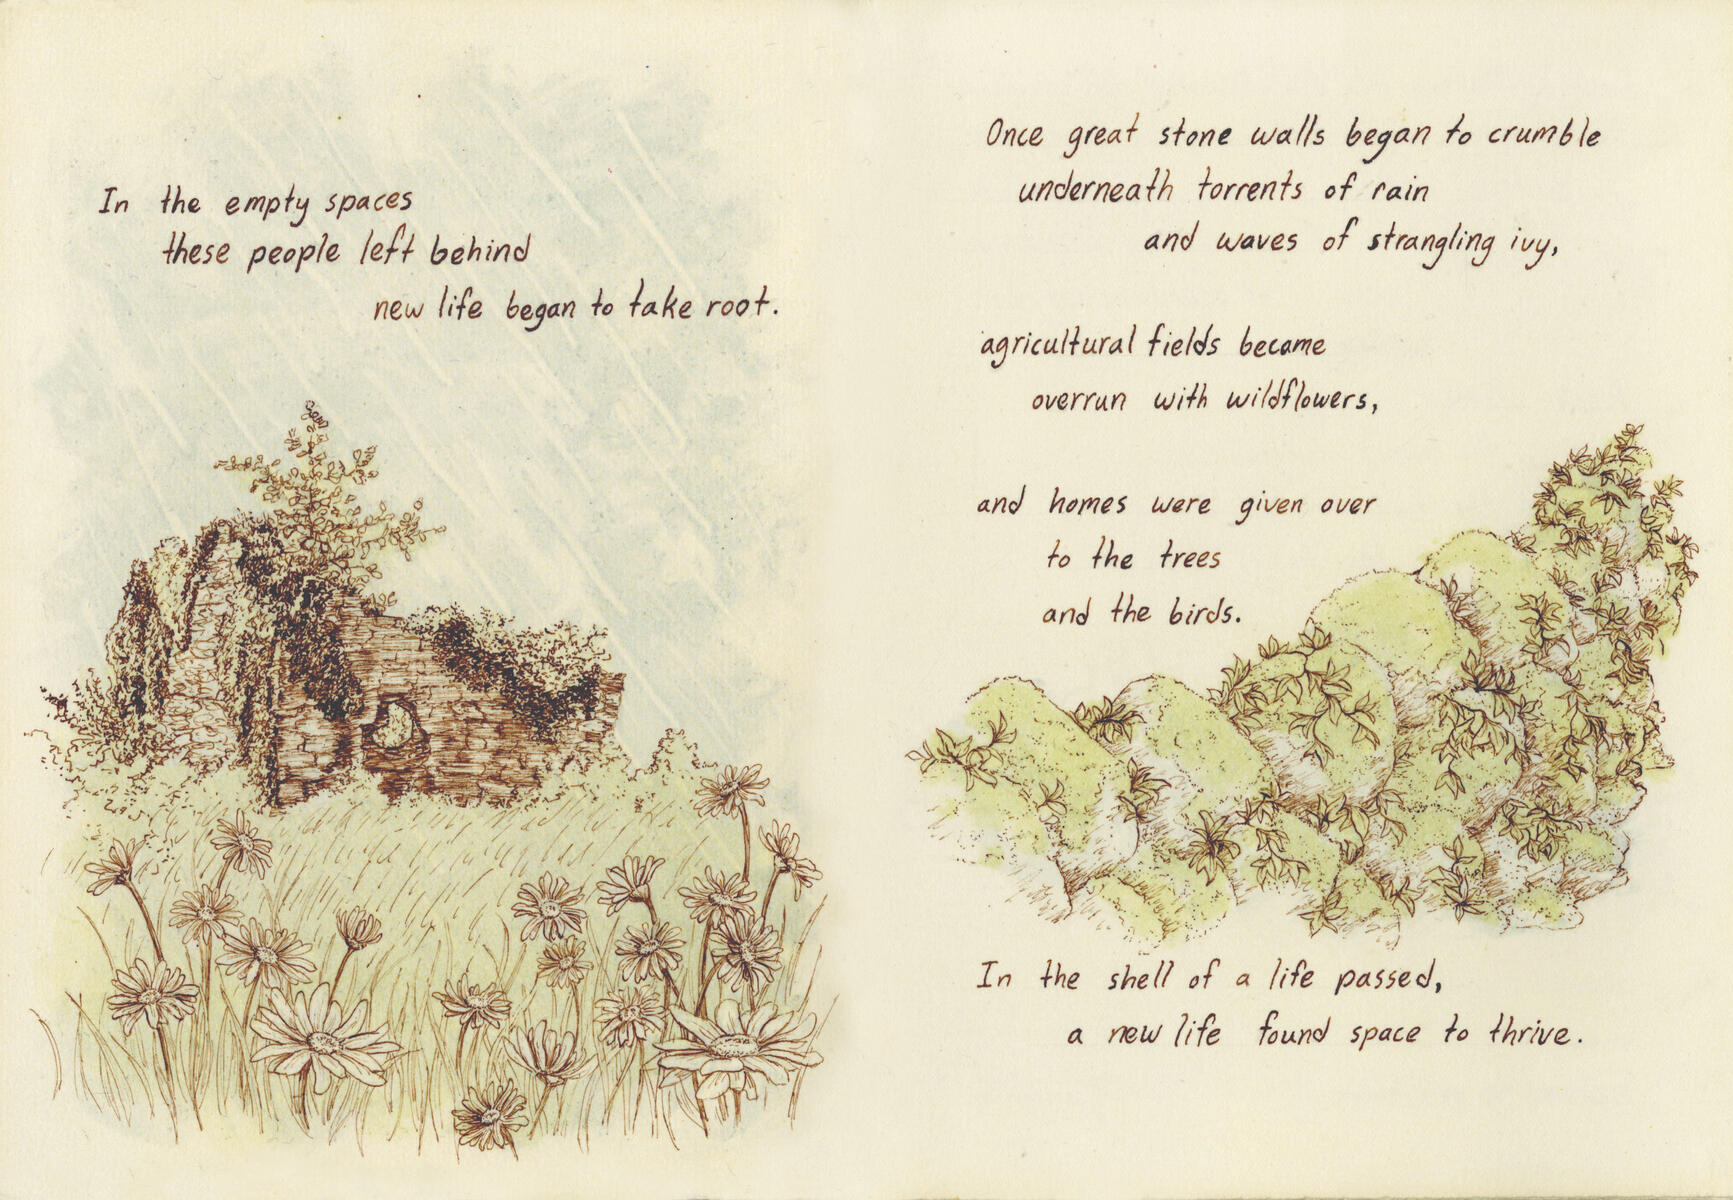 In the empty spaces
these people left behind
new life began to take root.
Once great stone walls began to crumble
underneath torrents of rain
and waves of strangling ivy,
agricultural fields became
overrun with wildflowers,
and homes were given over
to the trees
and the birds.
In the shell of a life passed,
a new life found space to thrive.